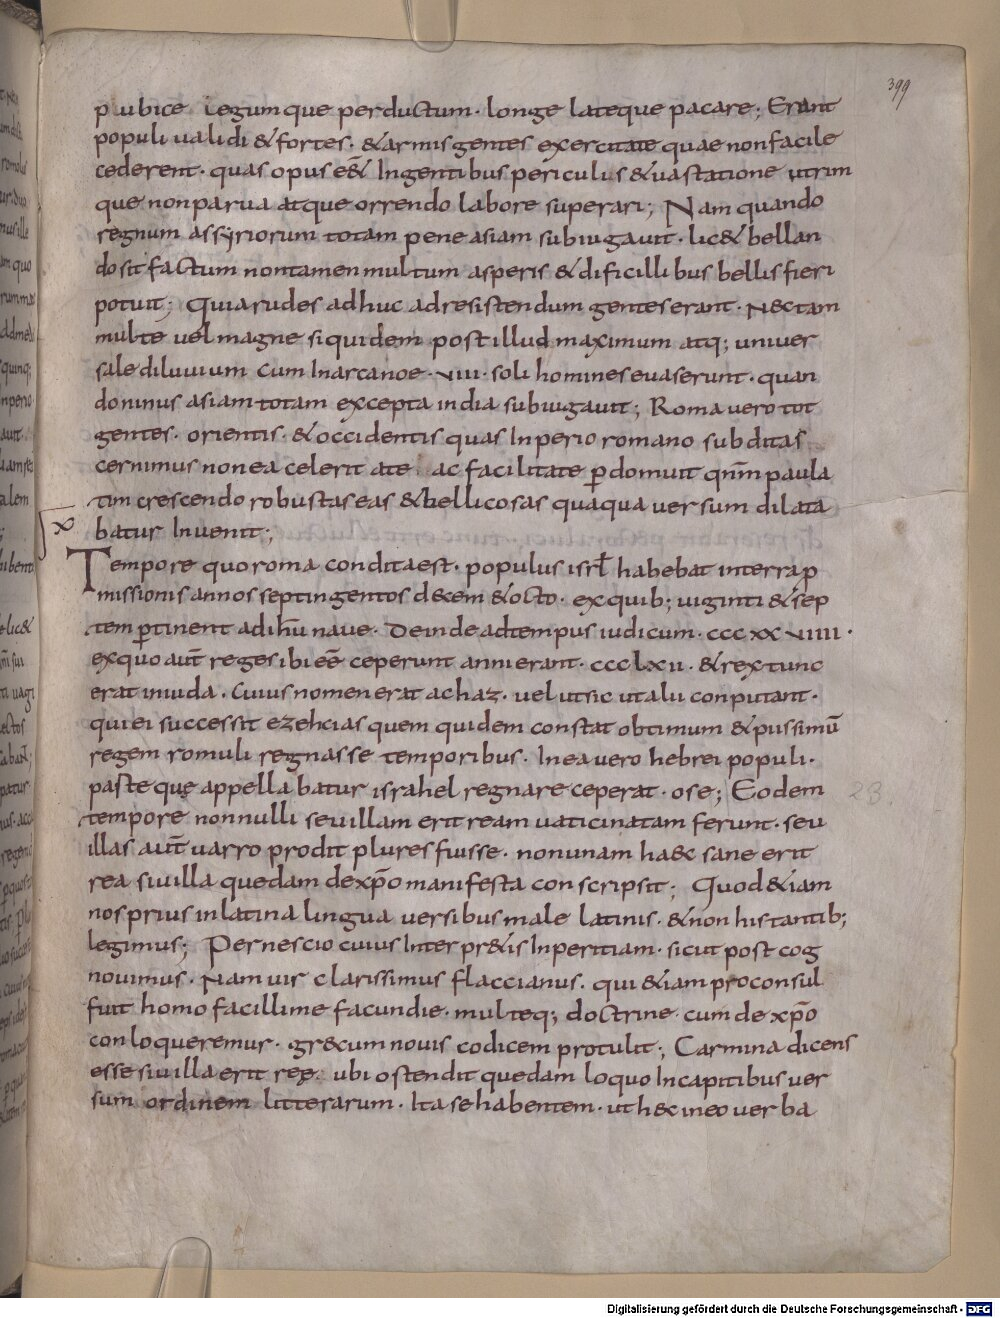 399
p ubice legumque perductum· longe lateque pacare; Erant
populi ualidi & fortes· & armis gentes exercitate quae nonfacile
cederent· quas opus e&̄ Ingentibus periculus & uastatione utrim
que nonparua atque orrendo labore superari; Nam quando
regnum assyriorum totam pene asiam subiugauit· lic& bellan
do sit factum nontamen multum asperis & dificillibus bellis fieri
potuit; Quia rudes adhuc adresistendum gentes erant· Nec tam
multe uel magne siquidem post illud maximum atq; uniuer
sale diluuium cum Inarca noe· VIII· soli homines euaserunt· quan
do ninus asiam totam excepta india subiugauit; Roma uero tot
gentes· orientis· & occidentis quas Inperio romano subditas
cernimus non ea celerit ate ac facilitate p̲domuit qnm̄ paula
tim crescendo robustas eas & bellicosas quaqua uersum dilata
batur Inuenit;
Tempore quo roma condita est· populus isrł habebat interra p̲
missionis annos septingentos decem & octo· exquib; uiginti & sep
tem p̲tinent ad ih̄u naue· Deinde adtempus iudicum· CCC XX VIIII·
exquo aut̄ reges ibi eē ceperunt anni erant· CCC LXII· & rex tunc
erat iniuda· Cuius nomen erat achaz· uel ut sic ut alii conputant·
qui ei successit ezehcias quem quidem constat obtimum & piissimū
regem romuli regnasse temporibus· In ea uero hebrei populi·
paste que appellabatur israhel regnare ceperat· ose; Eodem
23.
tempore nonnulli seuillam eritream uaticinatam ferunt· seu
illas aut̄ uarro prodit plures fuisse· non unam haec sane erit
rea siuilla quedam de xp̄o manifesta conscripsit; Quod & iam
nos prius in latina lingua uersibus male latinis· & non histantib;
legimus; Per nescio cuius Interpr&is Inperitiam· sicut post cog
nouimus· Nam uir clarissimus flaccianus· qui & iam proconsul
fuit homo facillime facundie· multeq; doctrine· cum de xp̄o
conloqueremur· grecum nouis codicem protulit; Carmina dicens
esse siuilla erit ree· ubi ostendit quedam loquo Incapitibus uer
sum ordinem litterarum· Ita se habentem· ut hec in eo uerba
Digitalisierung gefördert durch die Deutsche Forschungsgemeinschaft - DFG